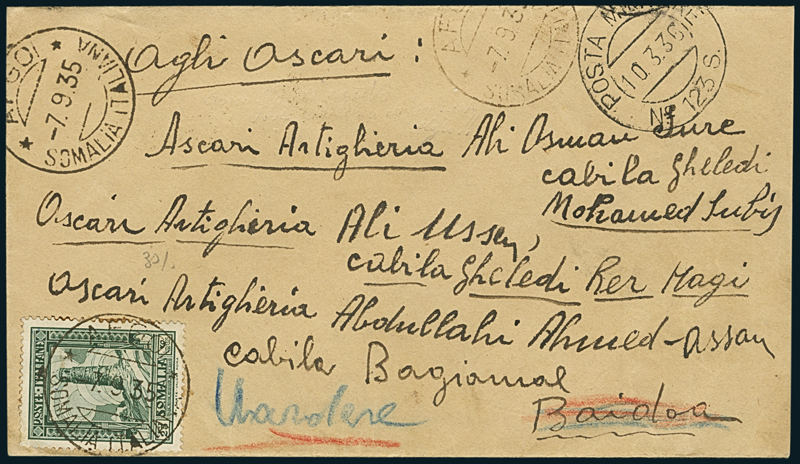 AFGOI
-7.9.35
SOMALIA ITALIANA
AFGOI
-7.9.35
SOMALIA
POSTA
10.3.36
No. 123 S.
Agli Ascari:
Ascari Artiglieria Ali Osman
cabila Gheledi
Mohamed Subis
Ascari Artiglieria Ali Ussen,
cabila Gheledi Rer Magi
30/.
Ascari Artiglieria Abdullahi Ahmed-Assan
cabila Bagiamal
Uardere
Baidoa
POSTE ITALIANE
SOMALIA